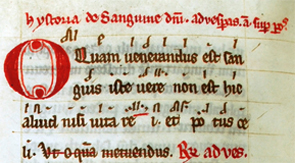 hystoria de Sanguine dni. ad vesperas. a. sup ps.
O Quam venerandus est san
guis iste vere non est hic
aliud nisi vita re i. et potus ce
li. Ut o qm metuendus. Rx ad ves.